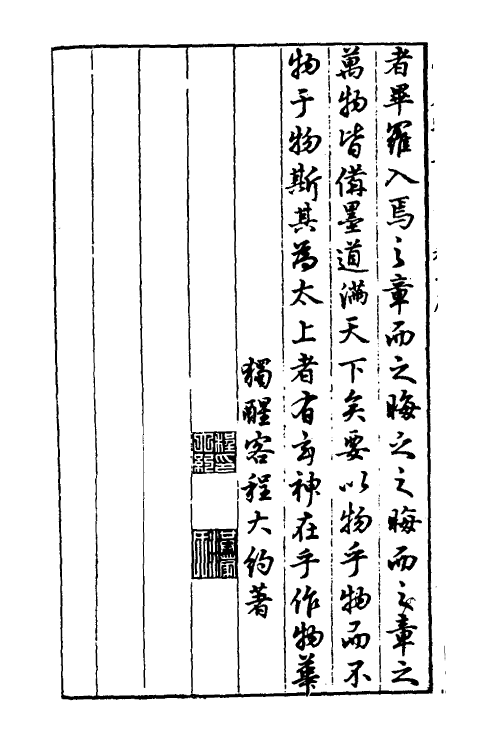 者畢羅入焉之章而之晦之之晦而之章之
萬物皆備墨道滿天下矣要以物乎物而不
物于物斯其為太上者有玄神在乎作物華
獨醒客程大約著